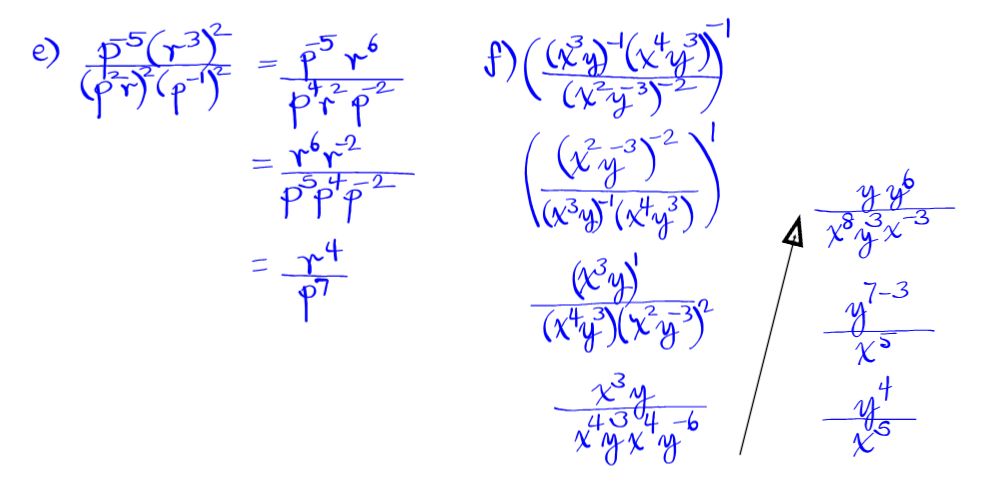 e) \frac{p^{-5}(r^3)^2}{(p^2r)^2(p^{-1})^2} = \frac{p^{-5}r^6}{p^4r^2p^{-2}}
= \frac{r^6r^{-2}}{p^5p^4p^{-2}}
= \frac{r^4}{p^7}
f) \left(\frac{(x^3y)^{-1}(x^4y^3)}{(x^2y^{-3})^{-2}}\right)^{-1}
\left(\frac{(x^2y^{-3})^{-2}}{(x^3y)^{-1}(x^4y^3)}\right)^1
\frac{(x^3y)^1}{(x^4y^3)(x^2y^{-3})^2}
\frac{x^3y}{x^4y^3x^4y^{-6}}
\frac{yy^6}{x^8y^3x^{-3}}
\frac{y^{7-3}}{x^5}
\frac{y^4}{x^5}